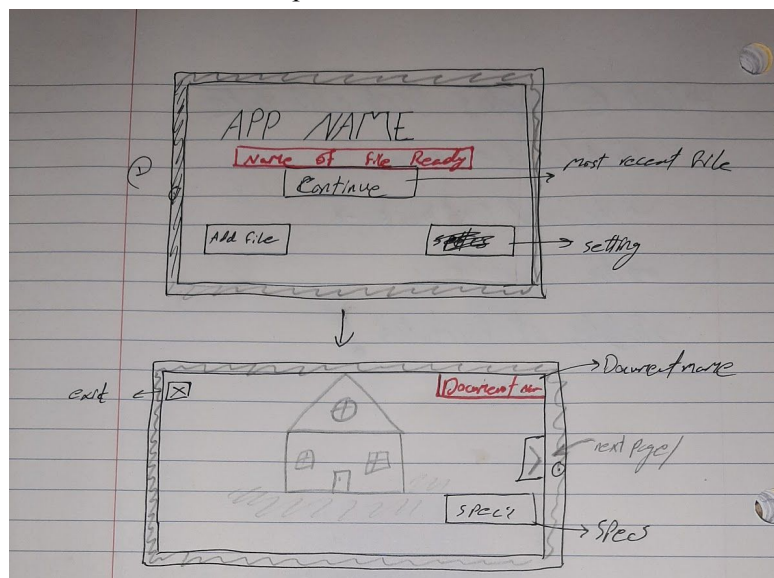 APP NAME
Name of File Ready
Continue
most recent File
Add File
setting
exit
X
Document
Document name
next page
SPECS
SPecs